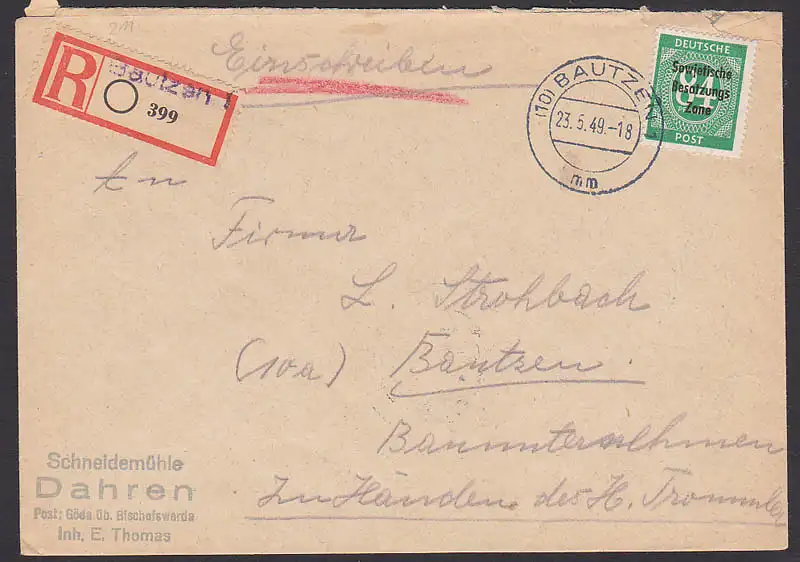 211
Einschreiben
R
Bautzen 1
399
(10) BAUTZEN
23.5.49.-18
mm
DEUTSCHE
Sowjetische
Besatzungs
Zone
84
POST
An
Firma
L. Strohbach
(10a) Bautzen.
Bauunternehmen
Zu Händen des H. Trommler
Schneidemühle
Dahren
Post: Göda üb. Bischofswerda
Inh. E. Thomas